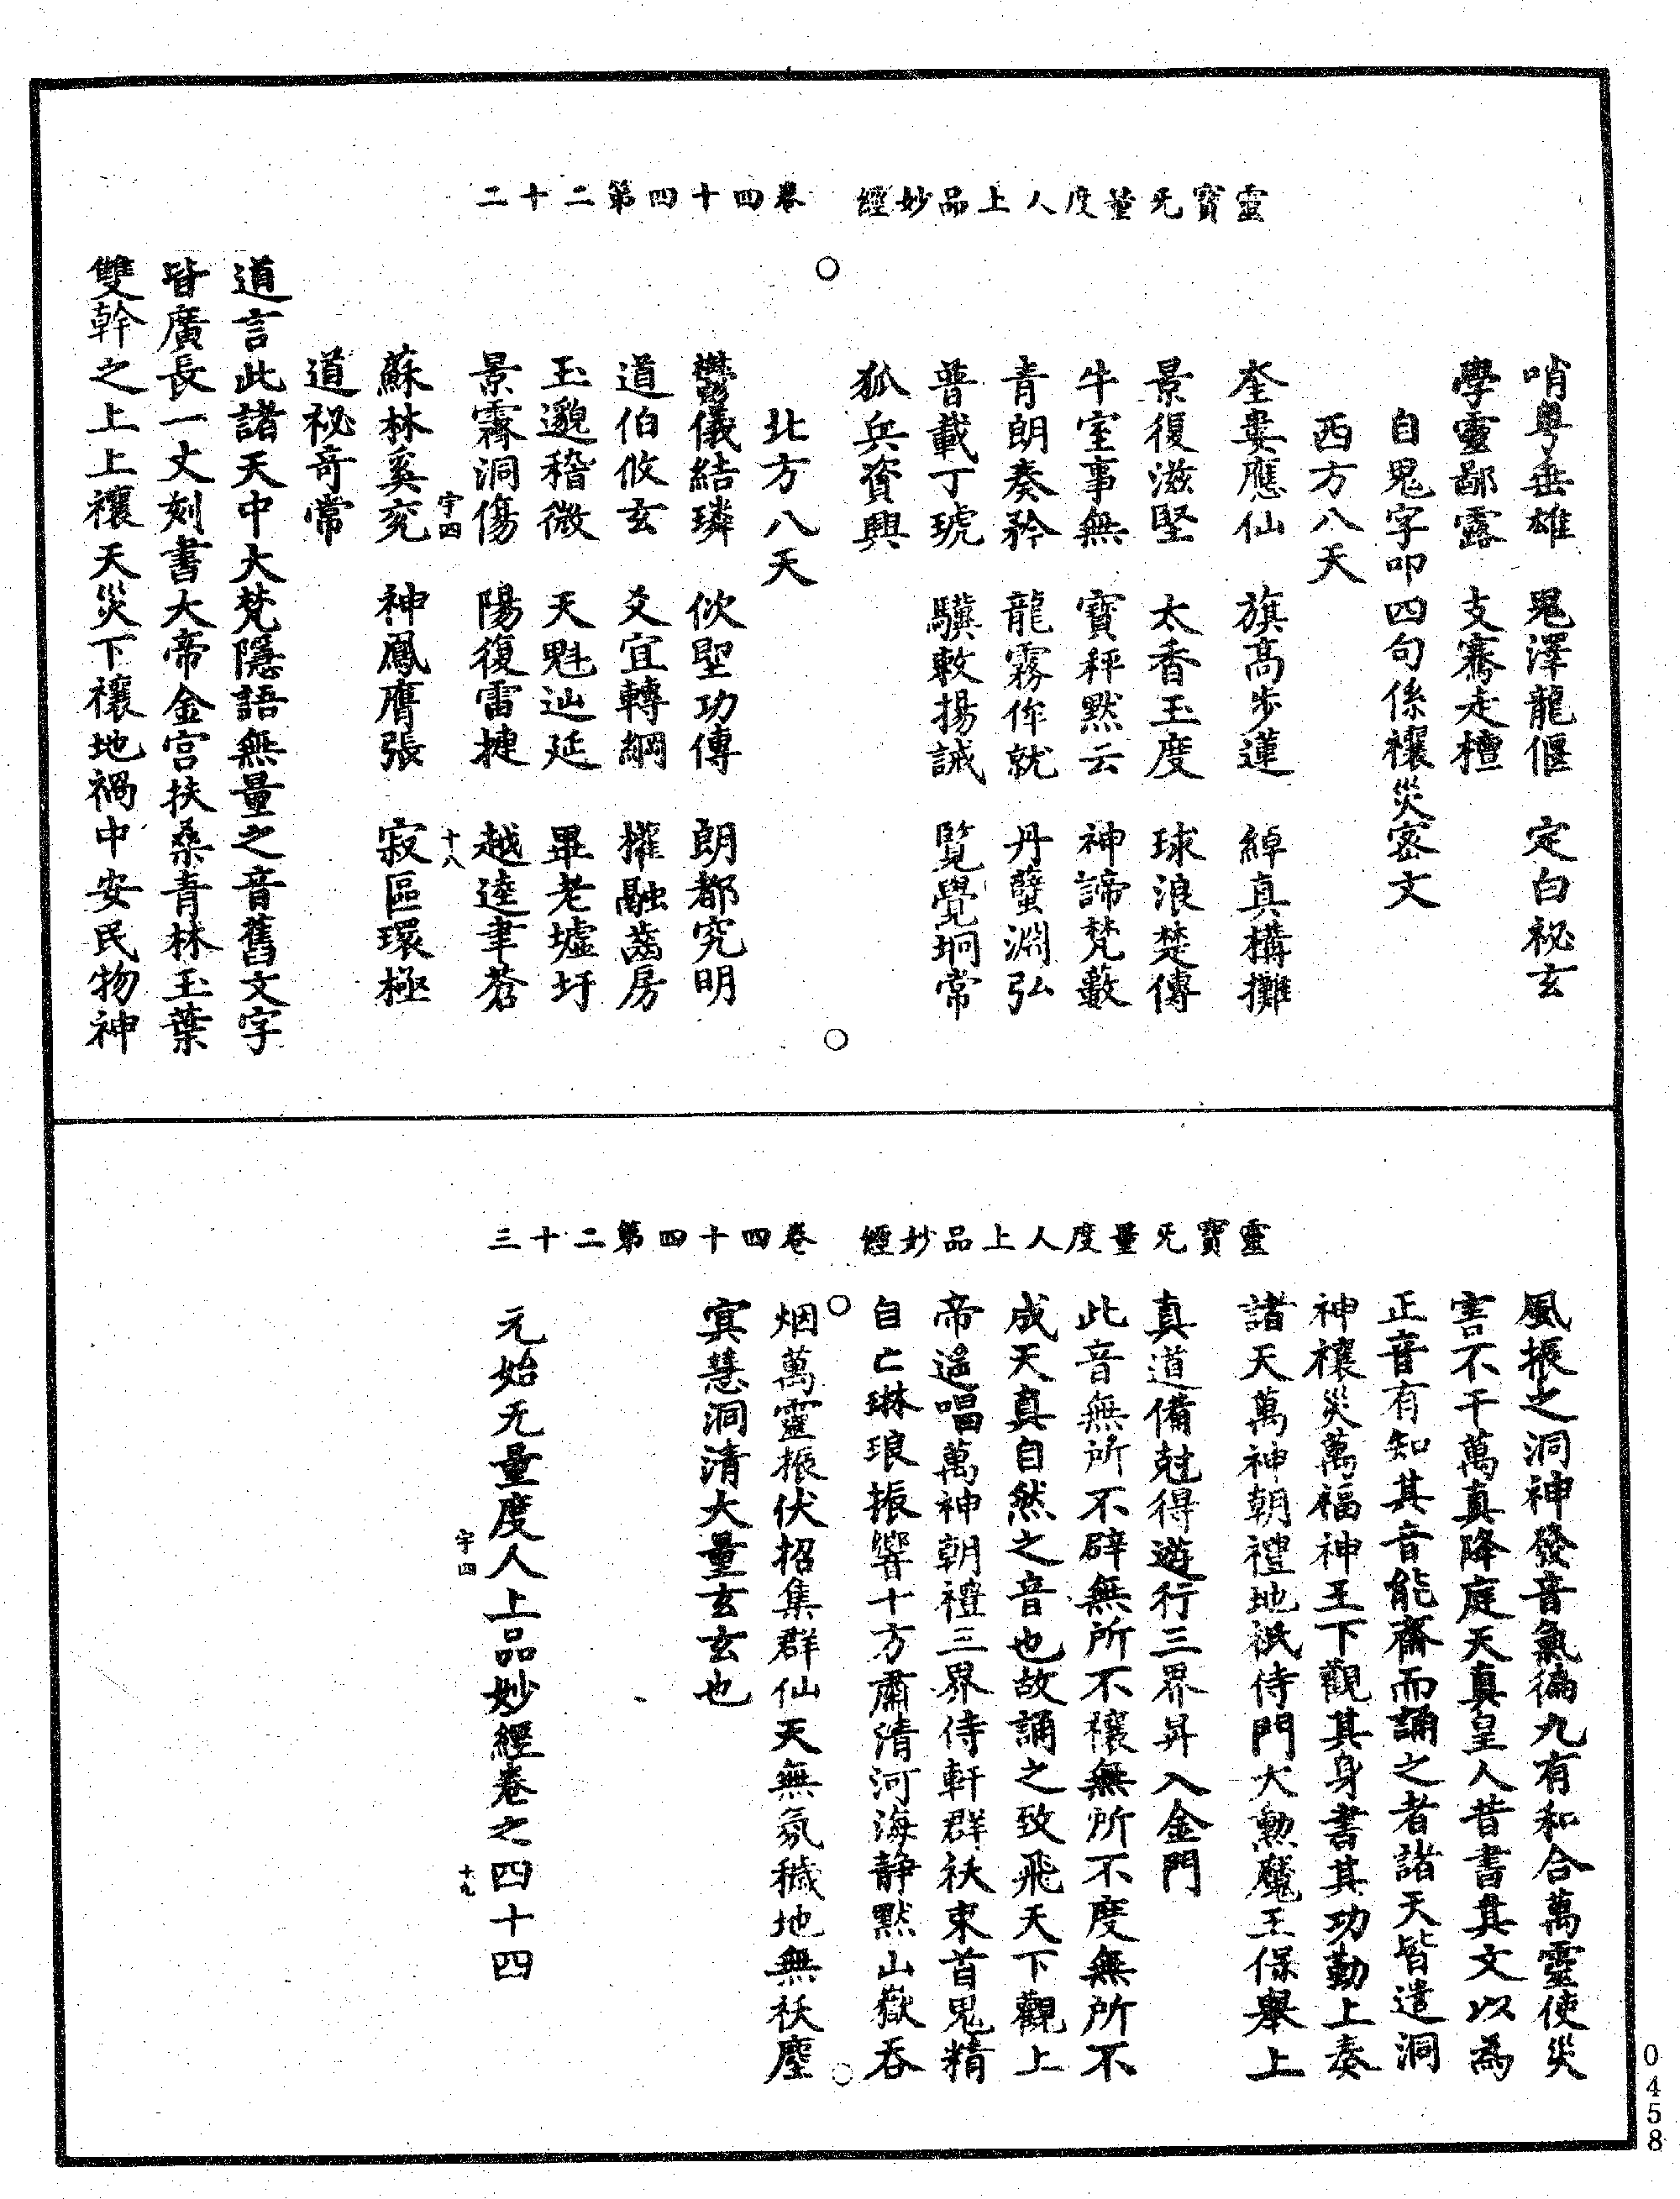 靈寶无量度人上品妙經　卷四十四第二十二
哨粤垂雄　鬼澤龍偃　定白祕玄
學靈鄙露　支騫走檀
自鬼字叩四句係禳災密文
西方八天
奎婁應仙　旗高步蓮　綽真構攤
景復滋堅　太香玉度　球浪楚傳
牛室事無　寶秤黙云　神諦梵藪
青朗奏矜　龍霧侔就　丹蠥淵弘
普載丁琥　驥敕揚誡　覽覺坰常
狐兵資興
北方八天
鬱儀結璘　佽聖功傳　朗都究明
道伯攸玄　爻宜轉綱　權融齒房
玉邈稽微　天魁辿延　畢老墟圩
景霈洞傷　陽復雷捷　越逵聿蒼
宇四　十八
蘇林奚兖　神鳳膺張　寂區環極
道祕奇常
道言此諸天中大梵隱語無量之音舊文字
皆廣長一丈刻書大帝金宫扶桑青林玉葉
雙幹之上上禳天災下禳地禍中安民物神
靈寶无量度人上品妙經　卷四十四第二十三
風振之洞神發音氣徧九有和合萬靈使災
害不干萬真降庭天真皇人昔書其文以為
正音有知其音能齋而誦之者諸天皆遣洞
神禳災萬福神王下觀其身書其功勤上奏
諸天萬神朝禮地祇侍門大勲魔王保舉上
真道備尅得遊行三界昇入金門
此音無所不辟無所不禳無所不度無所不
成天真自然之音也故誦之致飛天下觀上
帝遥唱萬神朝禮三界侍軒群祅束首鬼精
自亡琳琅振響十方肅清河海静黙山嶽吞
烟萬靈振伏招集群仙天無氛穢地無祅塵
寘慧洞清大量玄玄也
元始无量度人上品妙經卷之四十四
宇四　十九
0458